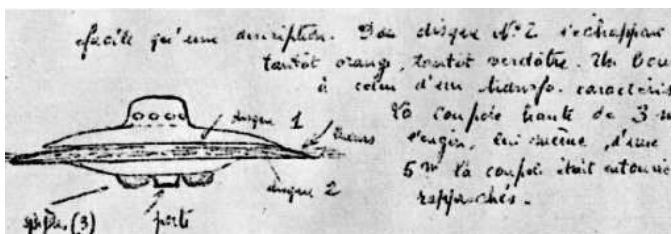 facile qu'une description. Du disque N° 2 s'échappai
tantôt orange, tantôt verdâtre. Un bou
à celui d'un transfo. caractéris
La coupole haute de 3 m
l'engin, lui même, d'une
5 m la coupole était entouré
rapprochés.
disque 1
lueurs
disque 2
(3)
porte